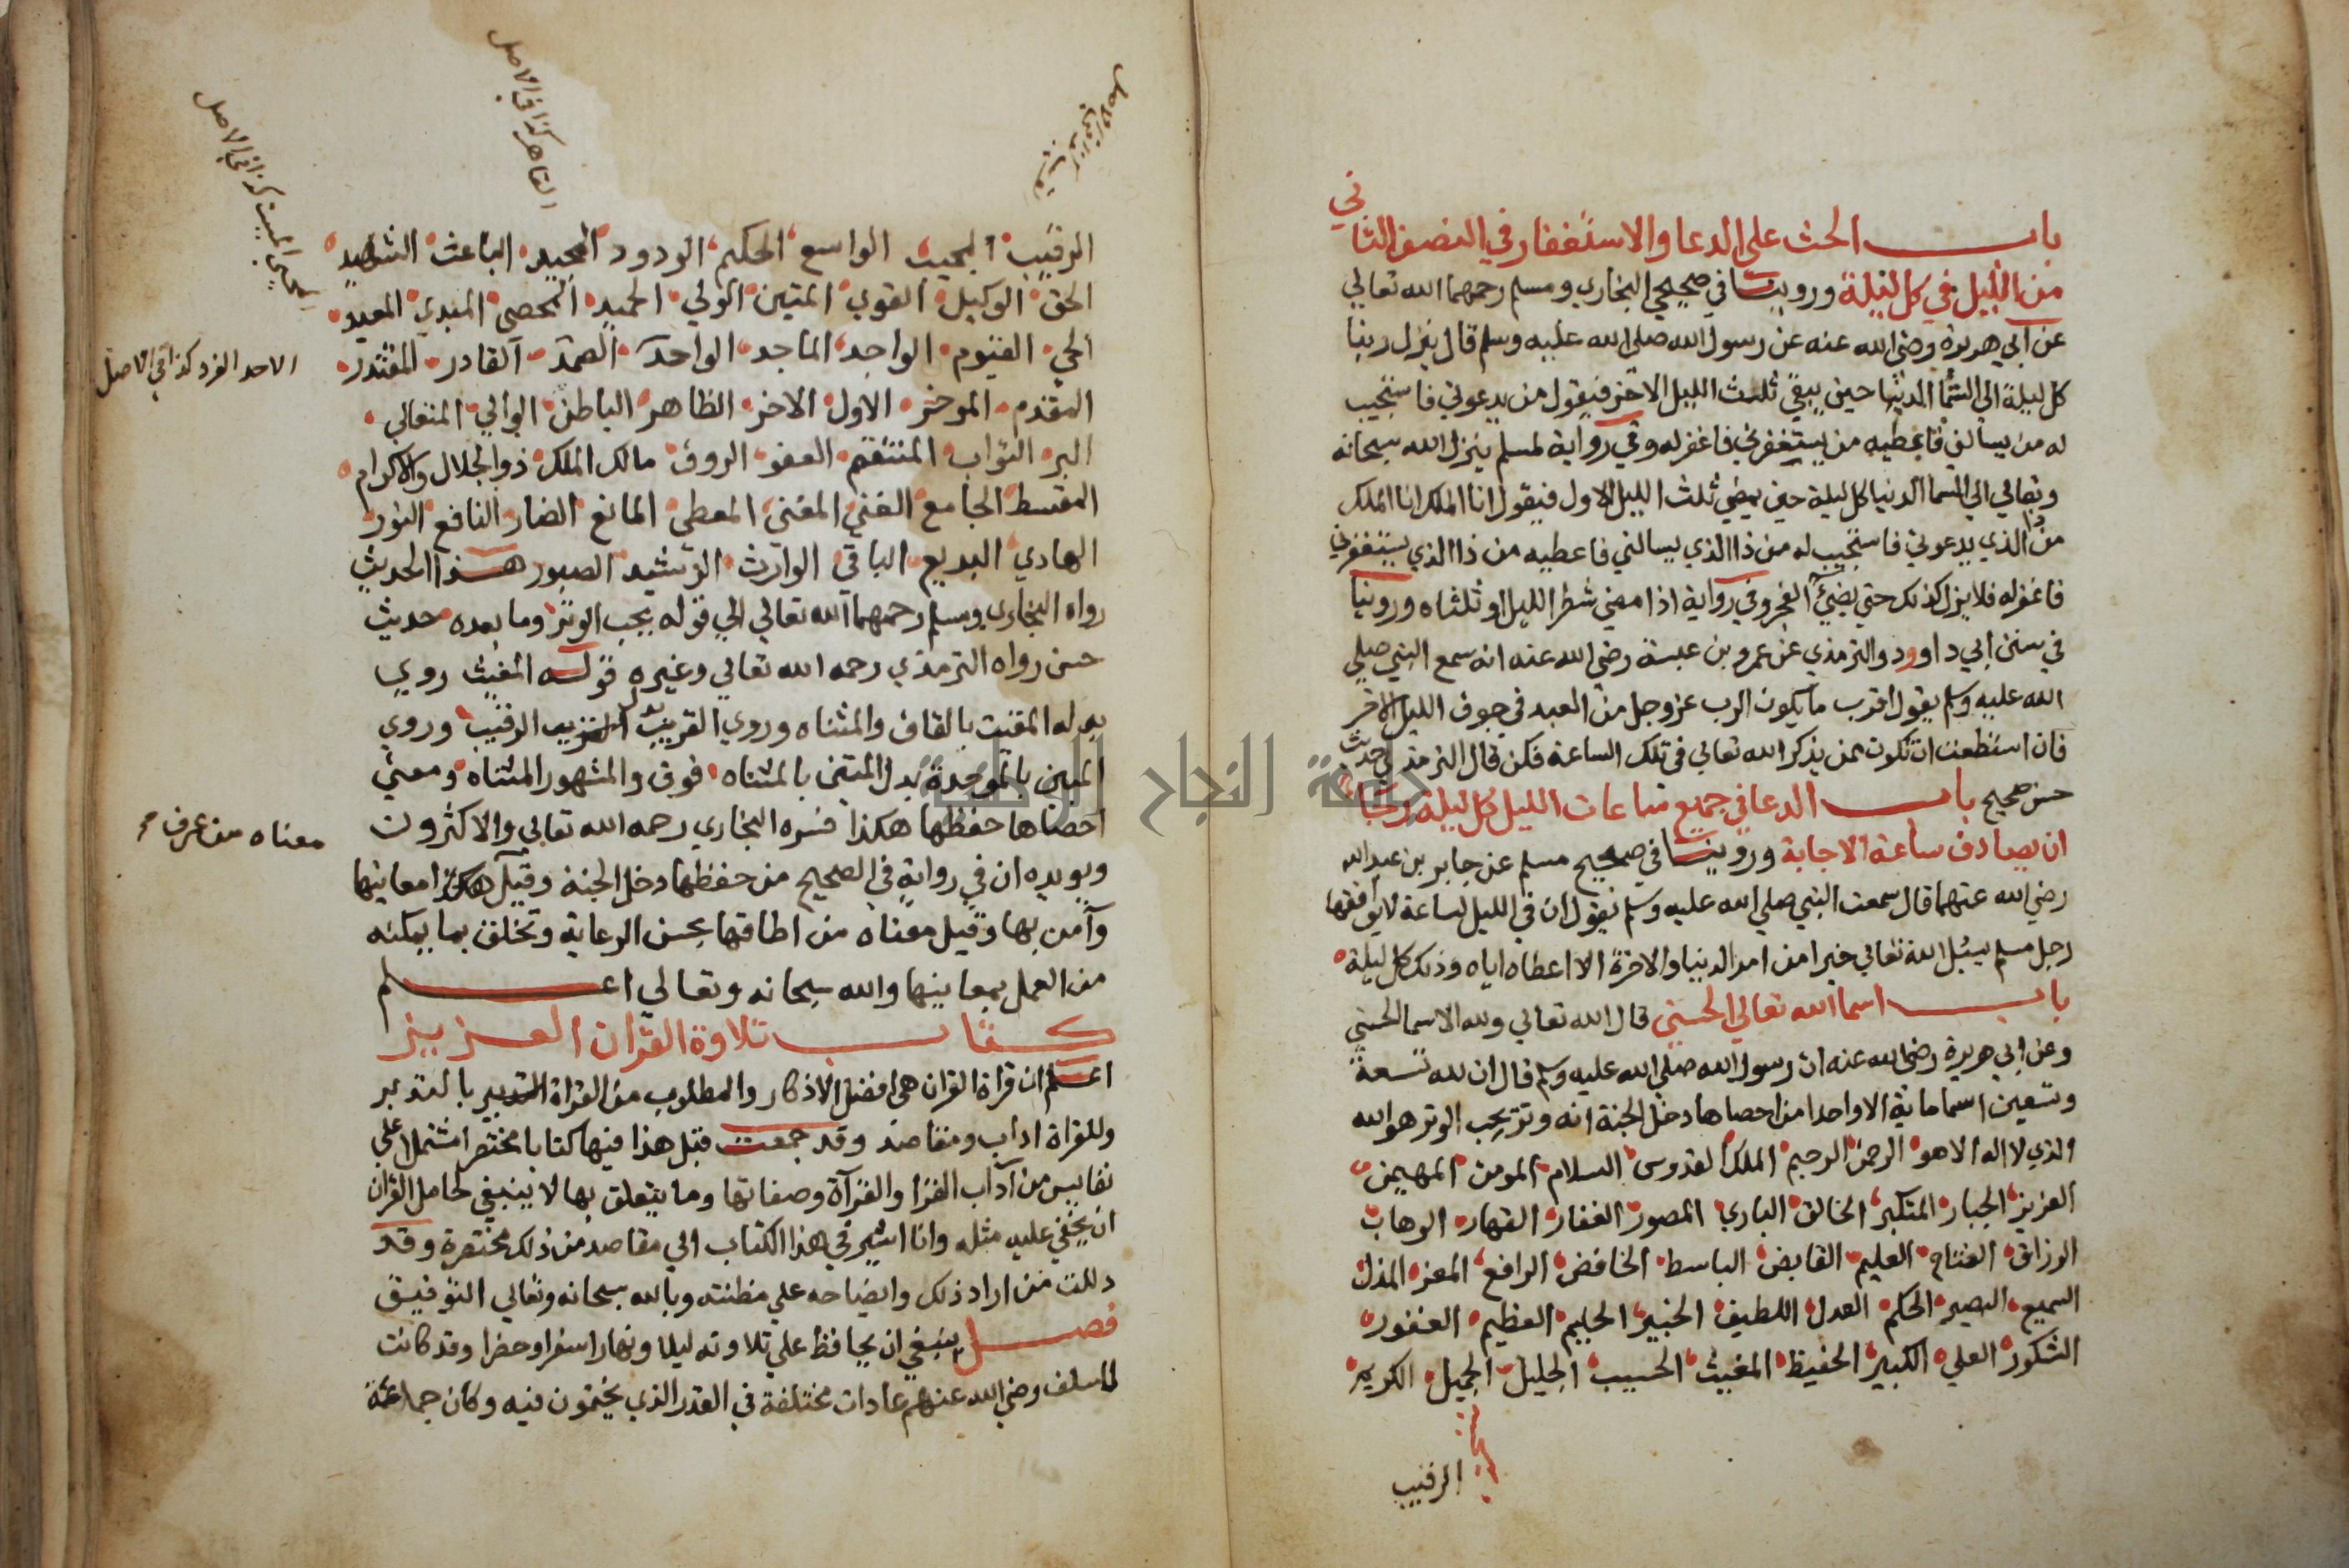 باب الحث على الدعا والاستغفار في النصف الثاني
من الليل في كل ليلة وروينا في صحيحي البخاري ومسلم رحمهما الله تعالي
عن ابي هريرة رضي الله عنه عن رسول الله صلى الله عليه وسلم قال ينزل ربنا
كل ليلة الى السما الدنيا حين يبقي ثلث الليل الاخر فيقول من يدعوني فاستجيب
له من يسالني فاعطيه من يستغفرني فاغفر له وفي رواية لمسلم ينزل الله سبحانه
وتعالي الي السما الدنيا كل ليلة حين يمضي ثلث الليل الاول فيقول انا الملك انا الملك
من ذا الذي يدعوني فاستجيب له من ذا الذي يسالني فاعطيه من ذا الذي يستغفرني
فاغفر له فلا يزل كذلك حتي يضيء الفجر وفي رواية اذا مضي شطر الليل او ثلثاه وروينا
في سنن ابي داوود والترمذي عن عمرو بن عبسة رضي الله عنه انه سمع النبي صلي
الله عليه وسلم يقول اقرب ما يكون الرب عز وجل من العبد في جوف الليل الاخر
فان استطعت ان تكون ممن يذكر الله تعالي في تلك الساعة فكن قال الترمذي حديث
حسن صحيح باب الدعا في جميع ساعات الليل كل ليلة رجا
ان يصادف ساعة الاجابة وروينا في صحيح مسلم عن جابر بن عبد الله
رضي الله عنهما قال سمعت النبي صلي الله عليه وسلم يقول ان في الليل لساعة لا يوافقها
رجل مسلم يسئل الله تعالي خيرا من امر الدنيا والاخرة الا اعطاه اياه وذلك كل ليلة
باب اسما الله تعالي الحسني قال الله تعالي ولله الاسما الحسني
وعن ابي هريرة رضي الله عنه ان رسول الله صلي الله عليه وسلم قال ان لله تسعة
وتسعين اسما ماية الا واحدا من احصاها دخل الجنة انه وتر يحب الوتر هو الله
الذي لا اله الا هو الرحمن الرحيم الملك القدوس السلام المومن المهيمن
العزيز الجبار المتكبر الخالق الباري المصور الغفار القهار الوهاب
الرزاق الفتاح العليم القابض الباسط الخافض الرافع المعز المذل
السميع البصير الحكم العدل اللطيف الخبير الحليم العظيم الغفور
الشكور العلي الكبير الحفيظ المغيث الحسيب الجليل الجميل الكريم
الرقيب
القاهر كذا في الاصل
المحيي المميت كذا في الاصل
الرقيب المجيب الواسع الحكيم الودود المجيد الباعث الشهيد
الحق الوكيل القوي المتين الولي الحميد المحصي المبدي المعيد
الحي القيوم الواجد الماجد الواحد الصمد القادر المقتدر
الاحد الفرد كذا في الاصل
المقدم الموخر الاول الاخر الظاهر الباطن الوالي المتعالي
البر التواب المنتقم العفو الروف مالك الملك ذو الجلال والاكرام
المقسط الجامع الغني المغني المعطي المانع الضار النافع النور
الهادي البديع الباقي الوارث الرشيد الصبور هذا الحديث
رواه البخاري ومسلم رحمهما الله تعالي الي قوله يحب الوتر وما بعده حديث
حسن رواه الترمذي رحمه الله تعالي وغيره قوله المغيث روي
بدله المقيت بالقاف والمثناه وروي القريب بدل الرقيب وروي
المبين بالموحدة بدل المتين بالمثناه فوق والمشهور المثناه ومعني
احصاها حفظها هكذا فسره البخاري رحمه الله تعالي والاكثرون
معناه من عرف
ويويده ان في رواية في الصحيح من حفظها دخل الجنة وقيل معانيها
وآمن بها وقيل معناه من اطاقها بحسن الرعاية وتخلق بما يمكنه
من العمل بمعانيها والله سبحانه وتعالي اعلم
كتاب تلاوة القران العزيز
اعلم ان قراة القران هي افضل الاذكار والمطلوب من القراة بالتدبر
وللقراة اداب ومقاصد وقد جمعت قبل هذا فيها كتابا مختصرا مشتملا علي
نفايس من آداب القرا والقرآة وصفاتها وما يتعلق بها لا ينبغي لحامل القران
ان يخفي عليه مثله وانا اشير في هذا الكتاب الي مقاصد من ذلك مختصرة وقد
دللت من اراد ذلك وايضاحه علي مظنته وبالله سبحانه وتعالي التوفيق
فصل ينبغي ان يحافظ علي تلاوته ليلا ونهارا سفرا وحضرا وقد كانت
للسلف رضي الله عنهم عادات مختلفة في القدر الذي يختمون فيه وكان جماعة
جامعة النجاح الوطنية